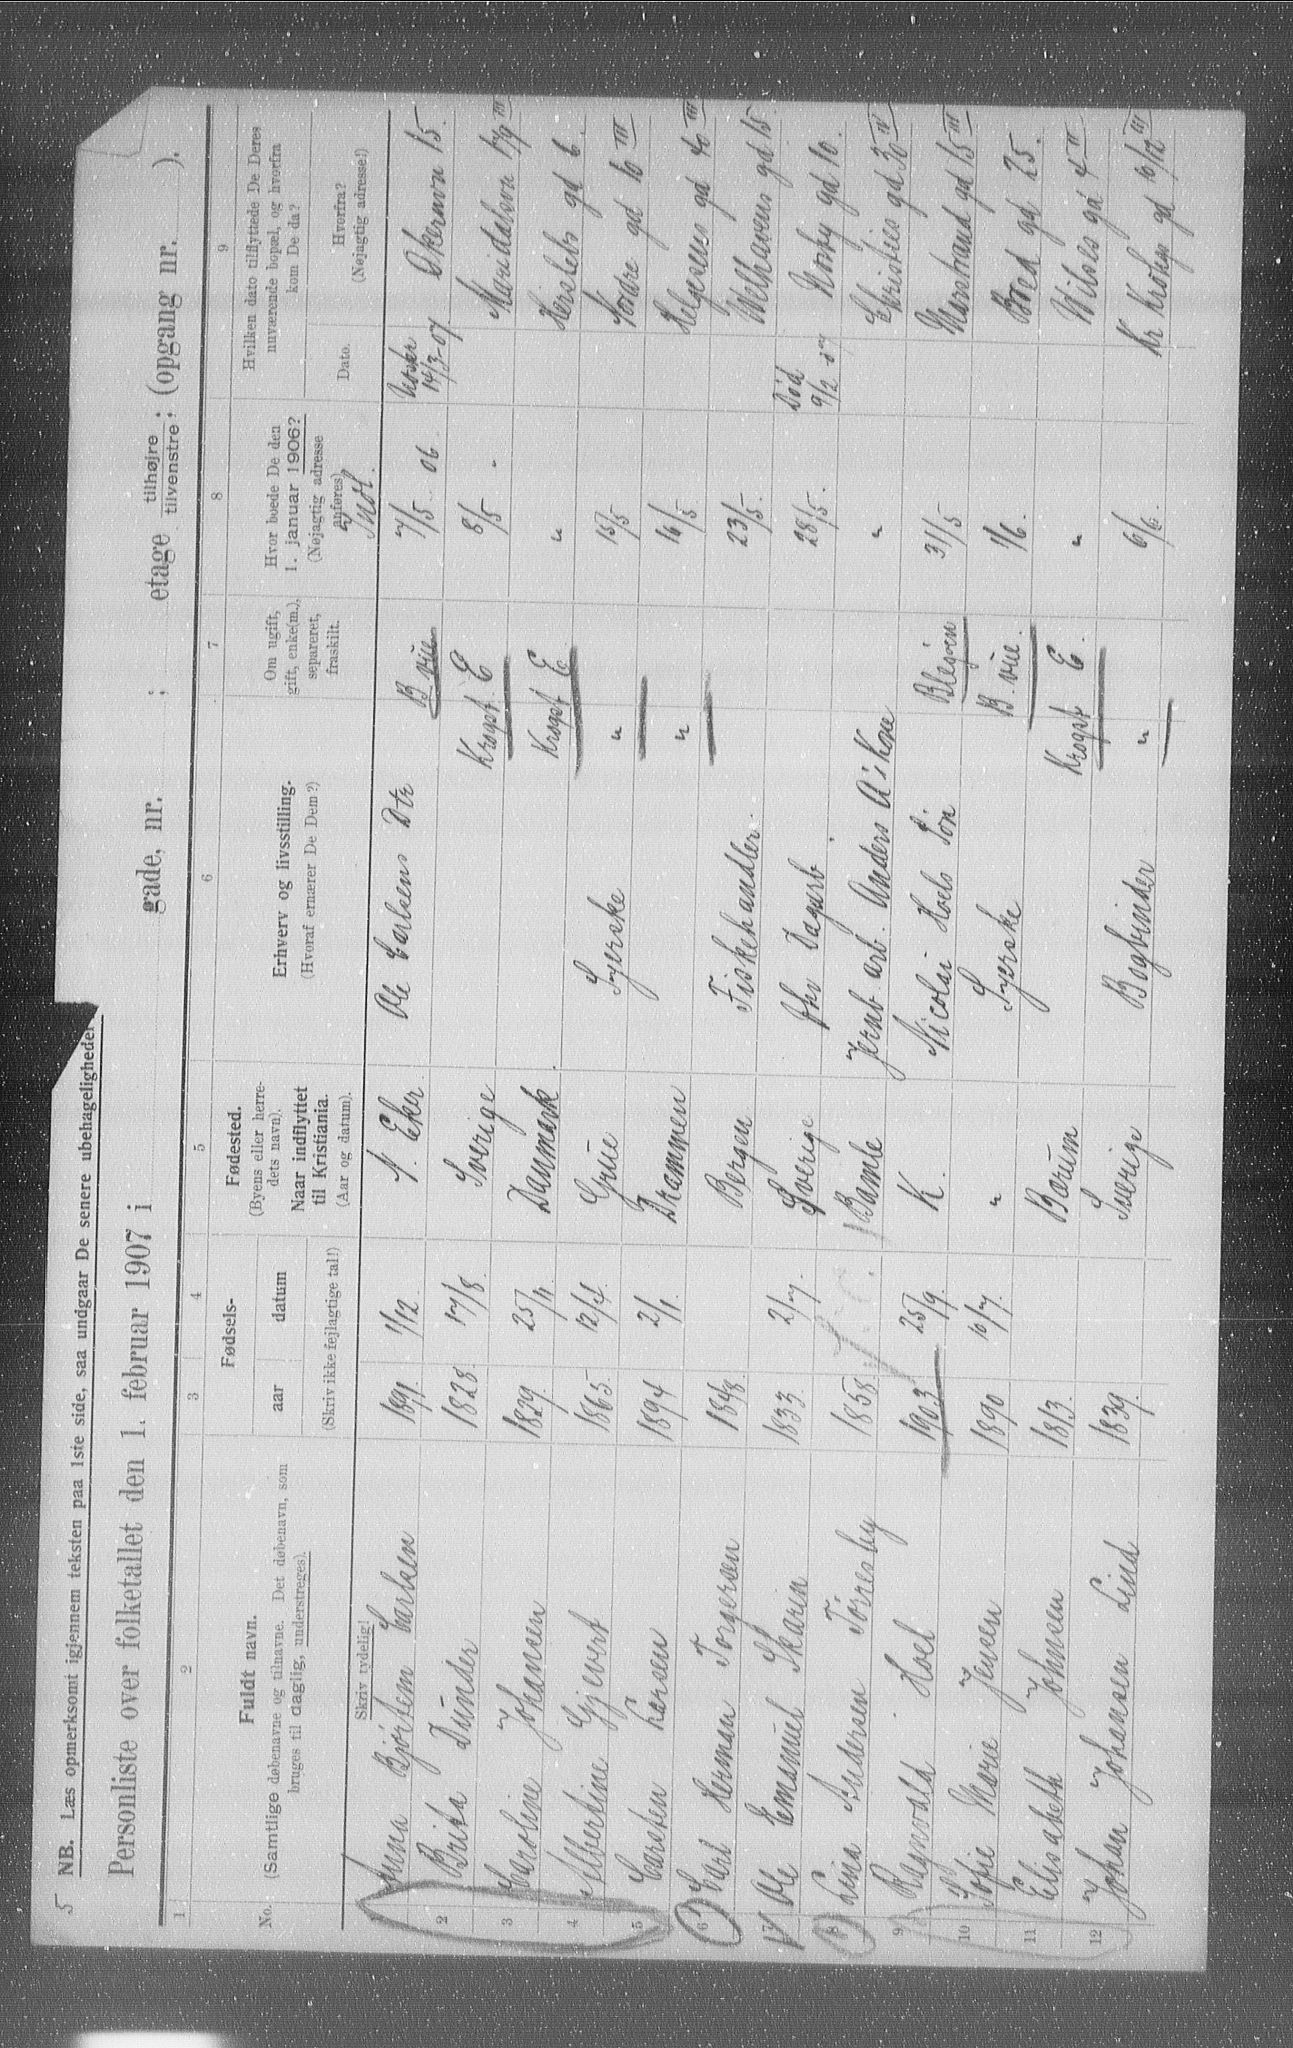 5 NB. Læs opmerksomt igjennem teksten paa 1ste side, saa undgaar De senere ubehageligheder
Personliste over folketallet den 1. februar 1907 i gade, nr. ; etage tilhøjre tilvenstre ; (opgang nr. ).
1 2 3 4 5 6 7 8 9
No. Fuldt navn. (Samtlige døbenavne og tilnavne. Det døbenavn, som bruges til daglig, understreges).
Skriv tydelig!
Fødsels- aar datum (Skriv ikke fejlagtige tal!)
Fødested. (Byens eller herredets navn). Naar indflyttet til Kristiania. (Aar og datum).
Erhverv og livsstilling. (Hvoraf ernærer De Dem?)
Om ugift, gift, enke(m.), separeret, fraskilt.
Hvor boede De den 1. januar 1906? (Nøjagtig adresse anføres)
Hvilken dato tilflyttede De Deres nuværende bopæl, og hvorfra kom De da?
Dato. Hvorfra? (Nøjagtig adresse!)
Indl.
1 Anna Bjørtem Carlsen 1891. 1/12. N. Eker Ole Carlsens Dtr B. vie 7/5 06. 14/3-07 Økernvn 15.
2 Brita Dunder 1828. 17/8. Sverige Krogst. E 8/5 " Maridalsvn 179 III
3 Caroline Johansen 1829. 25/11. Danmark. Krogst E " Herslebs gd 6.
4 Albertine Gjevert 1865. 12/4. Grue Syerske " 15/5 Nordre gd 10 III
5 Carsten Larsen 1894 2/1. Drammen " 16/5 Helgesens gd 40 III
6 Carl Herman Torgersen 1848. Bergen Fiskehandler. 23/5. Welhavens gd 15.
7 Ole Emanuel Skarin 1833. 2/7. Sverige fhv Dagarb. 28/5. Død 9/2 07 Norby gd 10.
8 Lina Andersen Torresby 1858. Bamle Jernb. arb. Anders A's Kone " Christies gd 30 IV
9 Ragnvald Hoel 1903 25/9. K. Nicolai Hoels Søn Blegøen 31/5 Markstrand gd 15 III
10 Sofie Marie Jensen 1890 10/7. " Syerske B. vie. 1/6. Bred gd 25.
11 Elisabeth Johnsen 1813. Bærum Krogst E. " Wibes gd 4 II
12 Johan Johansen Lind 1839. Sverige Bogbinder " 6/6. Kr Krohgs gd 10/12 III